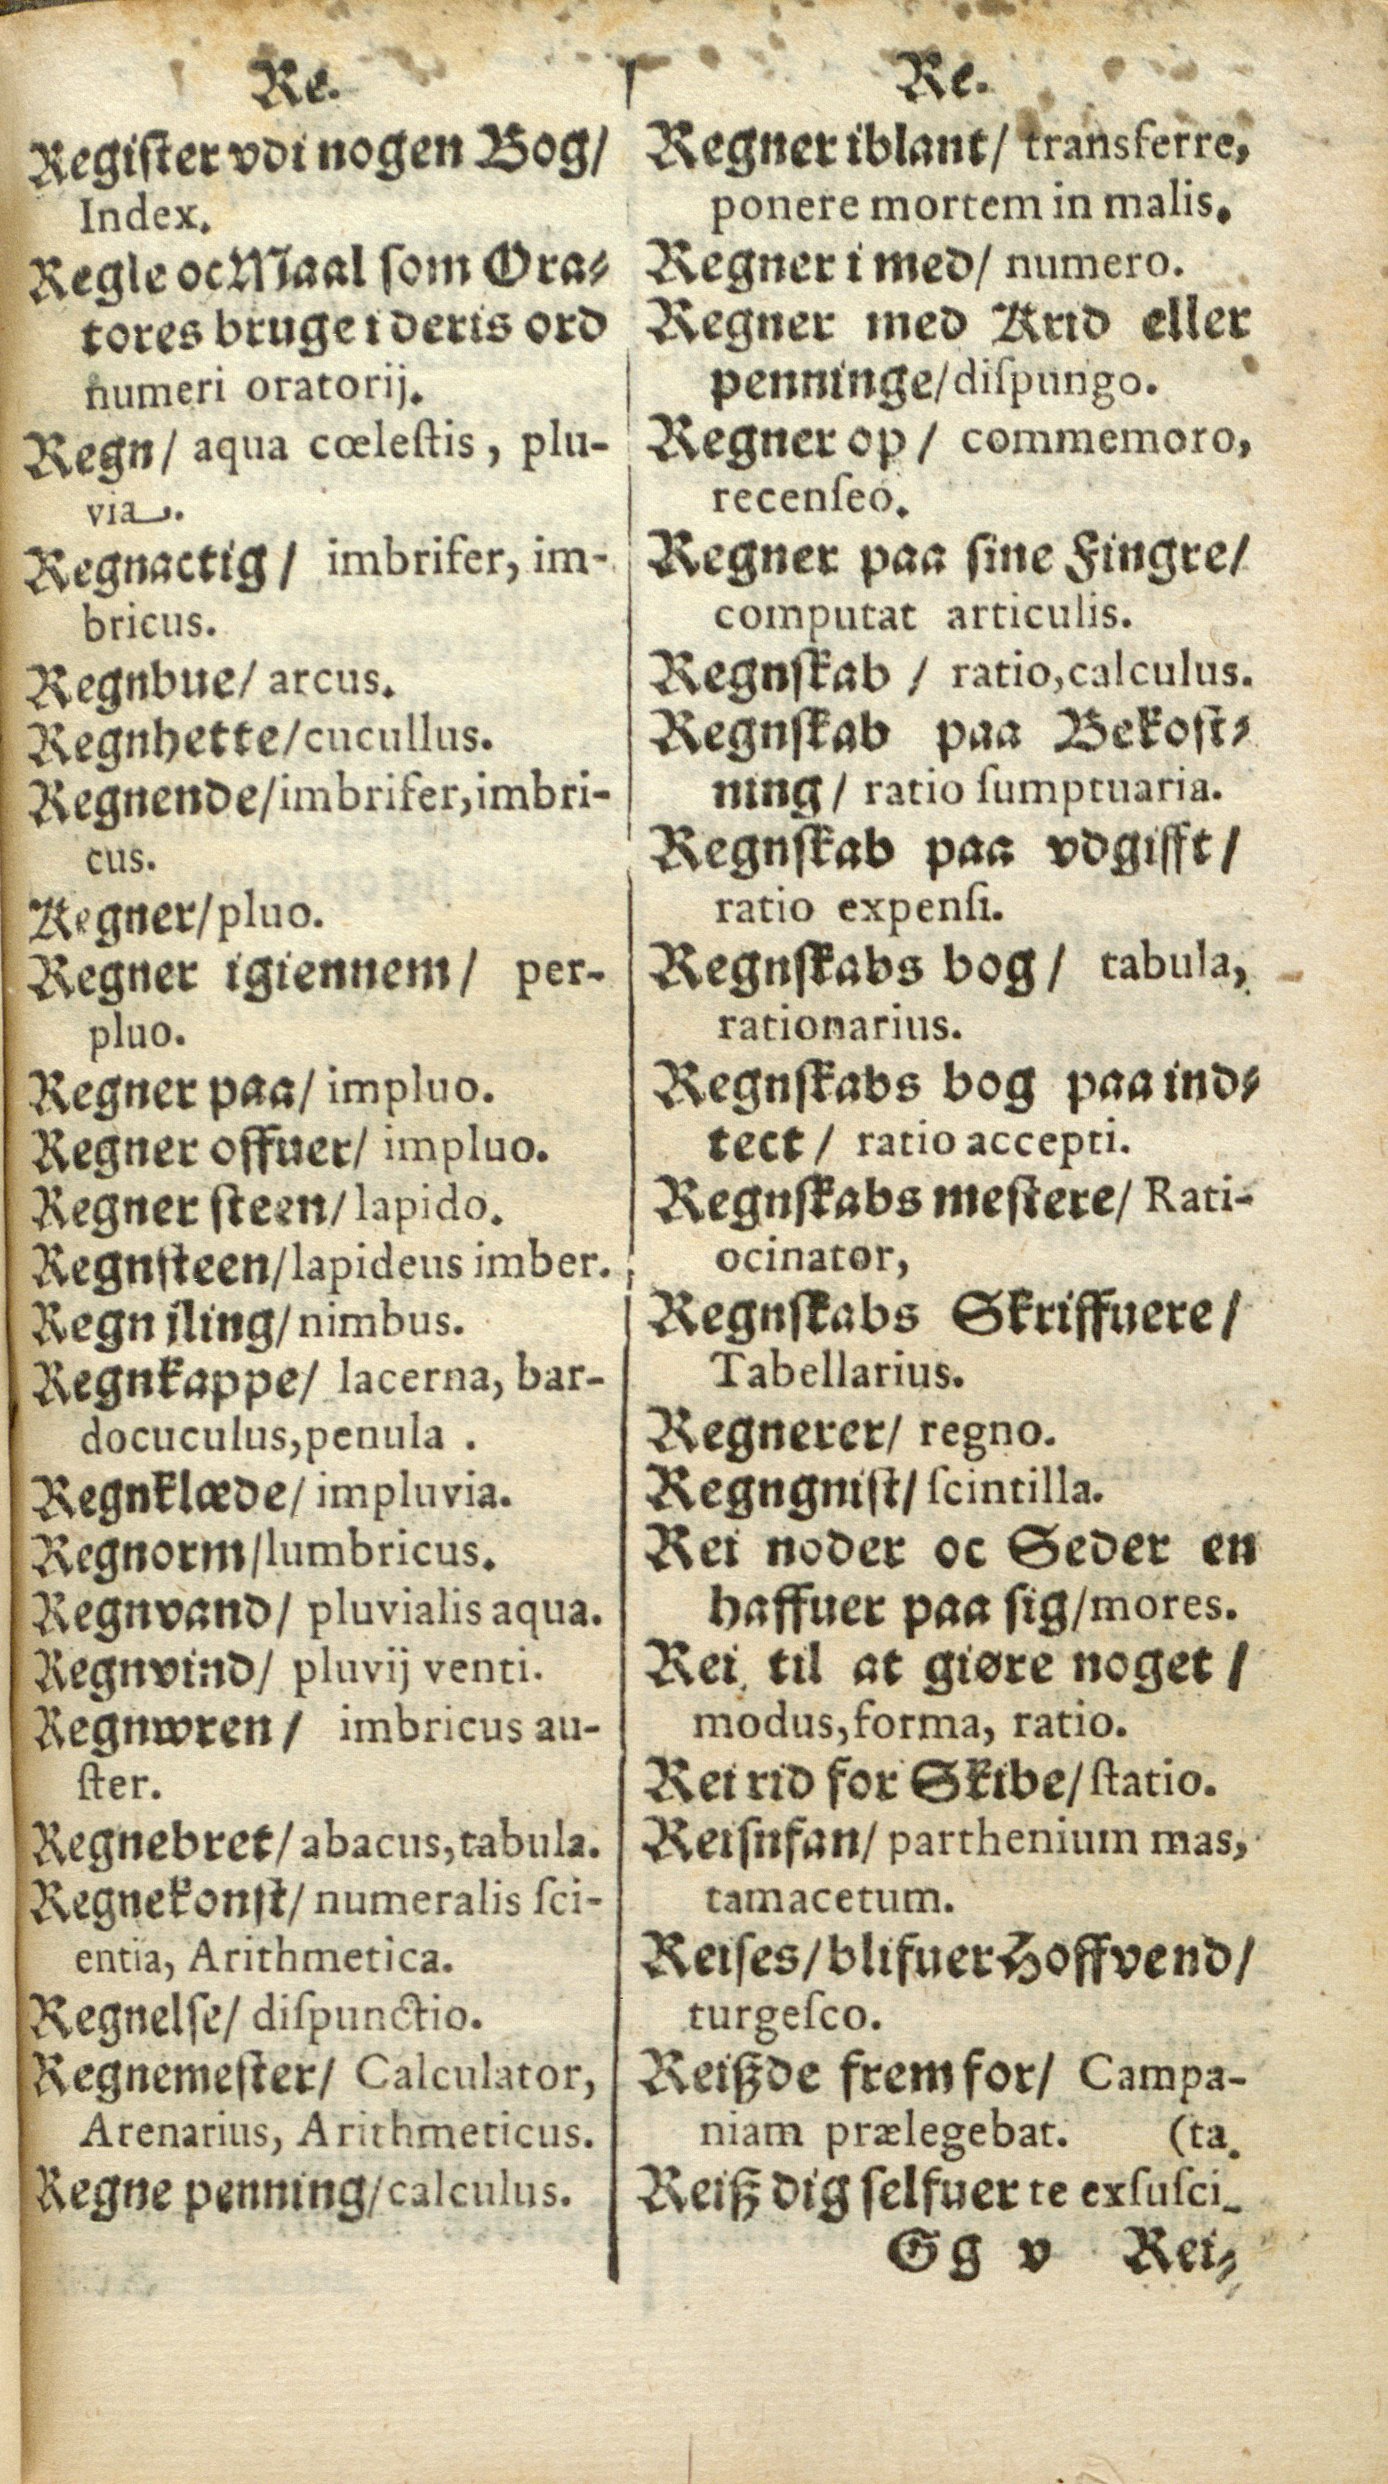 Re.
Regiſter vdi nogen Bog/
Index.
Regle oc Maal ſom Ora⸗
tores bruge i deris ord
numeri oratorij.
Regn/ aqua cœleſtis, plu-
via.
Regnactig/ imbrifer, im-
bricus.
Regnbue/ arcus.
Regnhette/cucullus.
Regnende/imbrifer,imbri-
cus.
Regner/pluo.
Regner igiennem/ per-
pluo.
Regner paa/ impluo.
Regner offuer/ impluo.
Regner ſteen/ lapido.
Regnſteen/lapideus imber.
Regn jling/ nimbus.
Regnkappe/ lacerna, bar-
docuculus,penula .
Regnklæde/ impluvia.
Regnorm/lumbricus.
Regnvand/ pluvialis aqua.
Regnvind/ pluvij venti.
Regnwren/ imbricus au-
ſter.
Regnebret/ abacus,tabula.
Regnekonſt/ numeralis ſci-
entia, Arithmetica.
Regnelſe/ diſpunctio.
Regnemeſter/ Calculator,
Arenarius, Arithmeticus.
Regne penning/calculus.
Re.
Regner iblant/ transferre,
ponere mortem in malis.
Regner i med/ numero.
Regner med Krid eller
penninge/diſpungo.
Regner op/ commemoro,
recenſeo.
Regner paa ſine Fingre/
computat articulis.
Regnſkab / ratio,calculus.
Regnſkab paa Bekoſt⸗
ning/ ratio ſumptuaria.
Regnſkab paa vdgifft/
ratio expenſi.
Regnſkabs bog/ tabula,
rationarius.
Regnſkabs bog paa ind⸗
tect/ ratio accepti.
Regnſkabs meſtere/ Rati-
ocinator,
Regnſkabs Skriffuere/
Tabellarius.
Regnerer/ regno.
Regngniſt/ ſcintilla.
Rei noder oc Seder en
haffuer paa ſig/mores.
Rei til at giøre noget/
modus,forma, ratio.
Rei rid for Skibe/ ſtatio.
Reiſnfan/ parthenium mas,
tamacetum.
Reiſes/blifuer Hoffvend/
turgeſco.
Reißde frem for/ Campa-
niam prælegebat. (ta.
Reiß dig ſelfuer te exſuſci-
Gg v Rei⸗